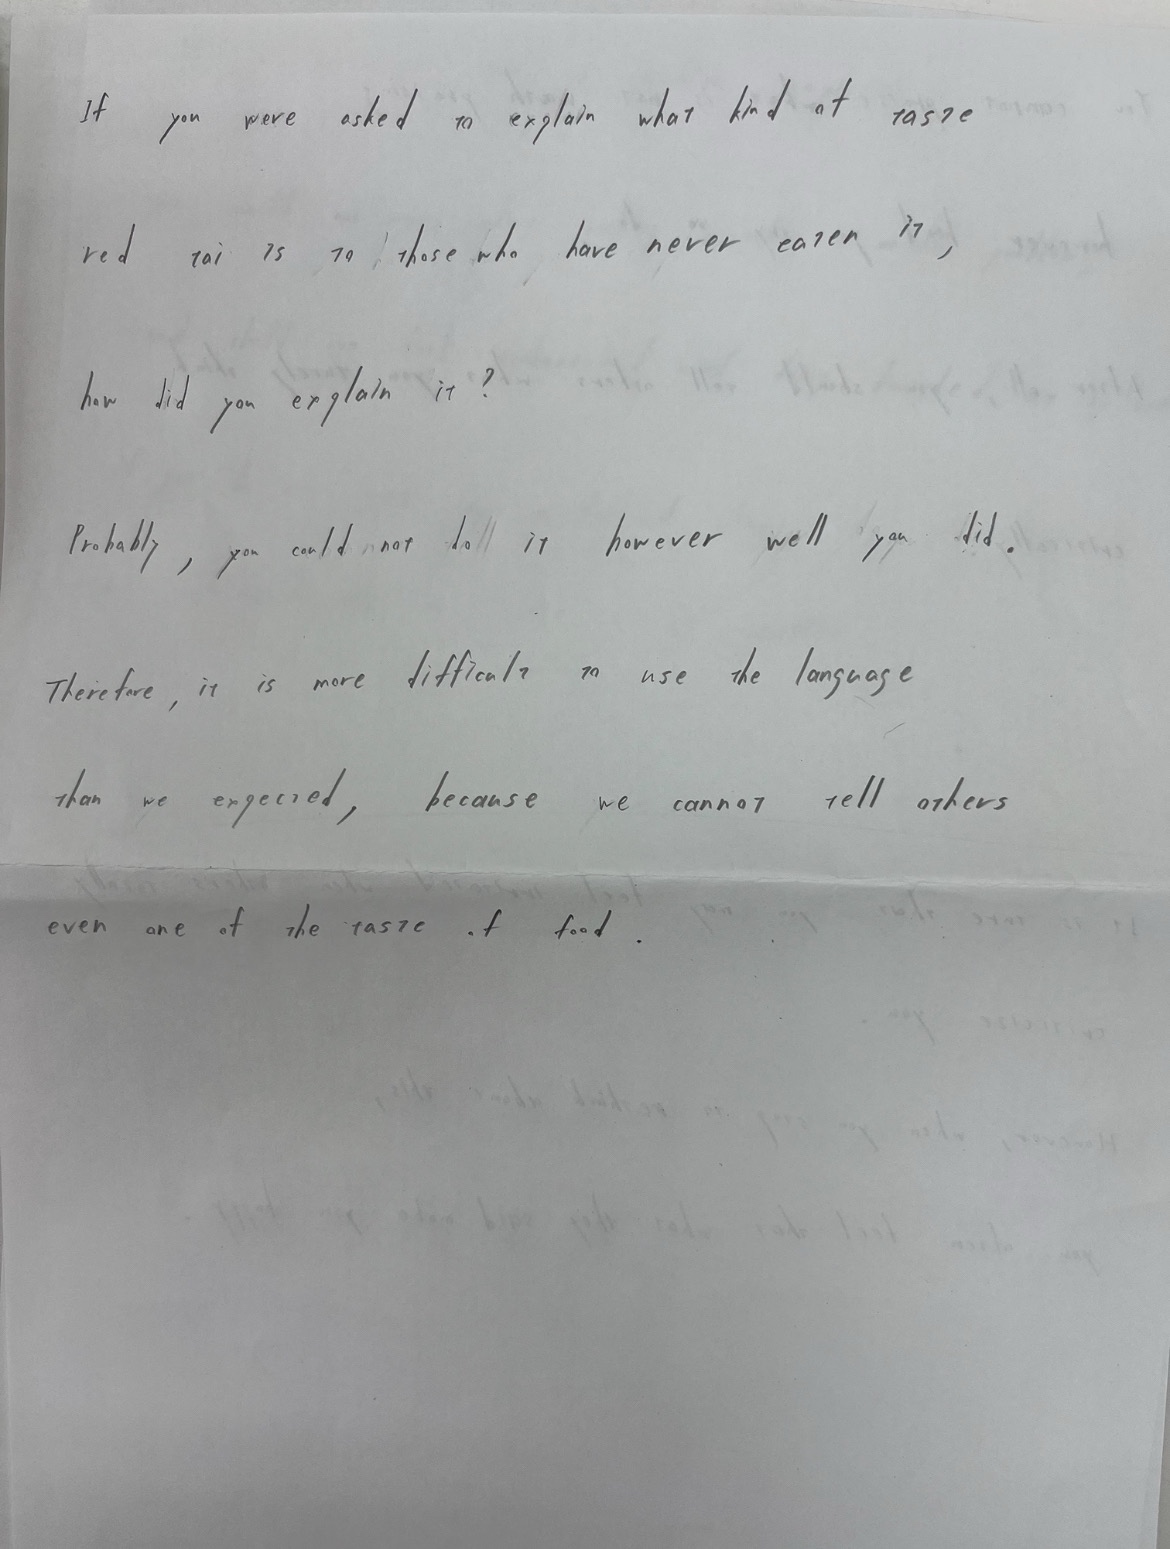 If you were asked to explain what kind of taste
red tai is to those who have never eaten it,
how did you explain it?
Probably, you could not do it however well you did.
Therefore, it is more difficult to use the language
than we expected, because we cannot tell others
even one of the taste of food.